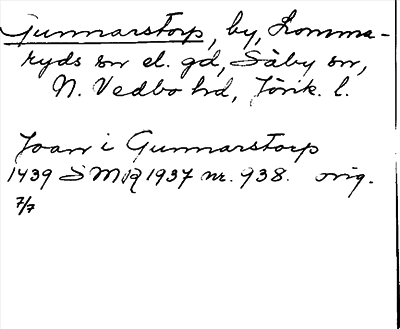 Gunnarstorp, by, Lomma-
ryds sn el. gd, Säby sn,
N. Vedbo hd, Jönk. l.
Joan i Gunnarstorp
1439 SMR 1937 nr. 938. orig.
7/7